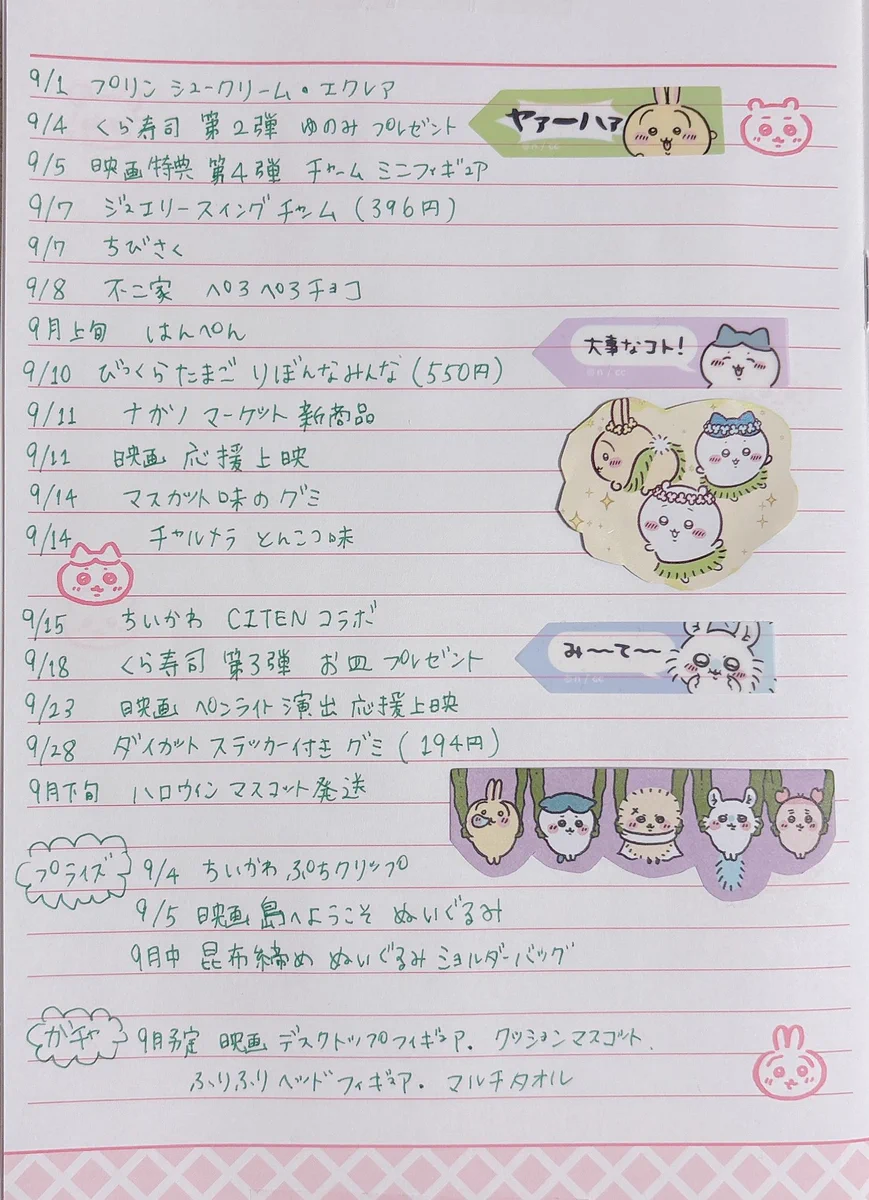 9/1 プリン シュークリーム・エクレア
9/4 くら寿司 第2弾 ゆのみ プレゼント
ヤァーハァ
9/5 映画特典 第4弾 チャーム ミニフィギュア
9/7 ジュエリースイングチャーム (396円)
9/7 ちびさく
9/8 不二家 ペロペロチョコ
9月上旬 はんぺん
大事なコト!
9/10 びっくらたまご りぼんなみんな (550円)
9/11 ナガノ マーケット 新商品
9/11 映画 応援上映
9/14 マスカット味のグミ
9/14 チャルメラ とんこつ味
9/15 ちいかわ CITEN コラボ
み〜て〜
9/18 くら寿司 第3弾 お皿 プレゼント
9/23 映画 ペンライト演出 応援上映
9/28 ダイカット ステッカー付き グミ (194円)
9月下旬 ハロウィン マスコット発送
プライズ 9/4 ちいかわ ぷちクリップ
9/5 映画 島へようこそ ぬいぐるみ
9月中 昆布締め ぬいぐるみ ショルダーバッグ
ガチャ 9月予定 映画 デスクトップフィギュア. クッションマスコット.
ふりふり ヘッドフィギュア. マルチタオル